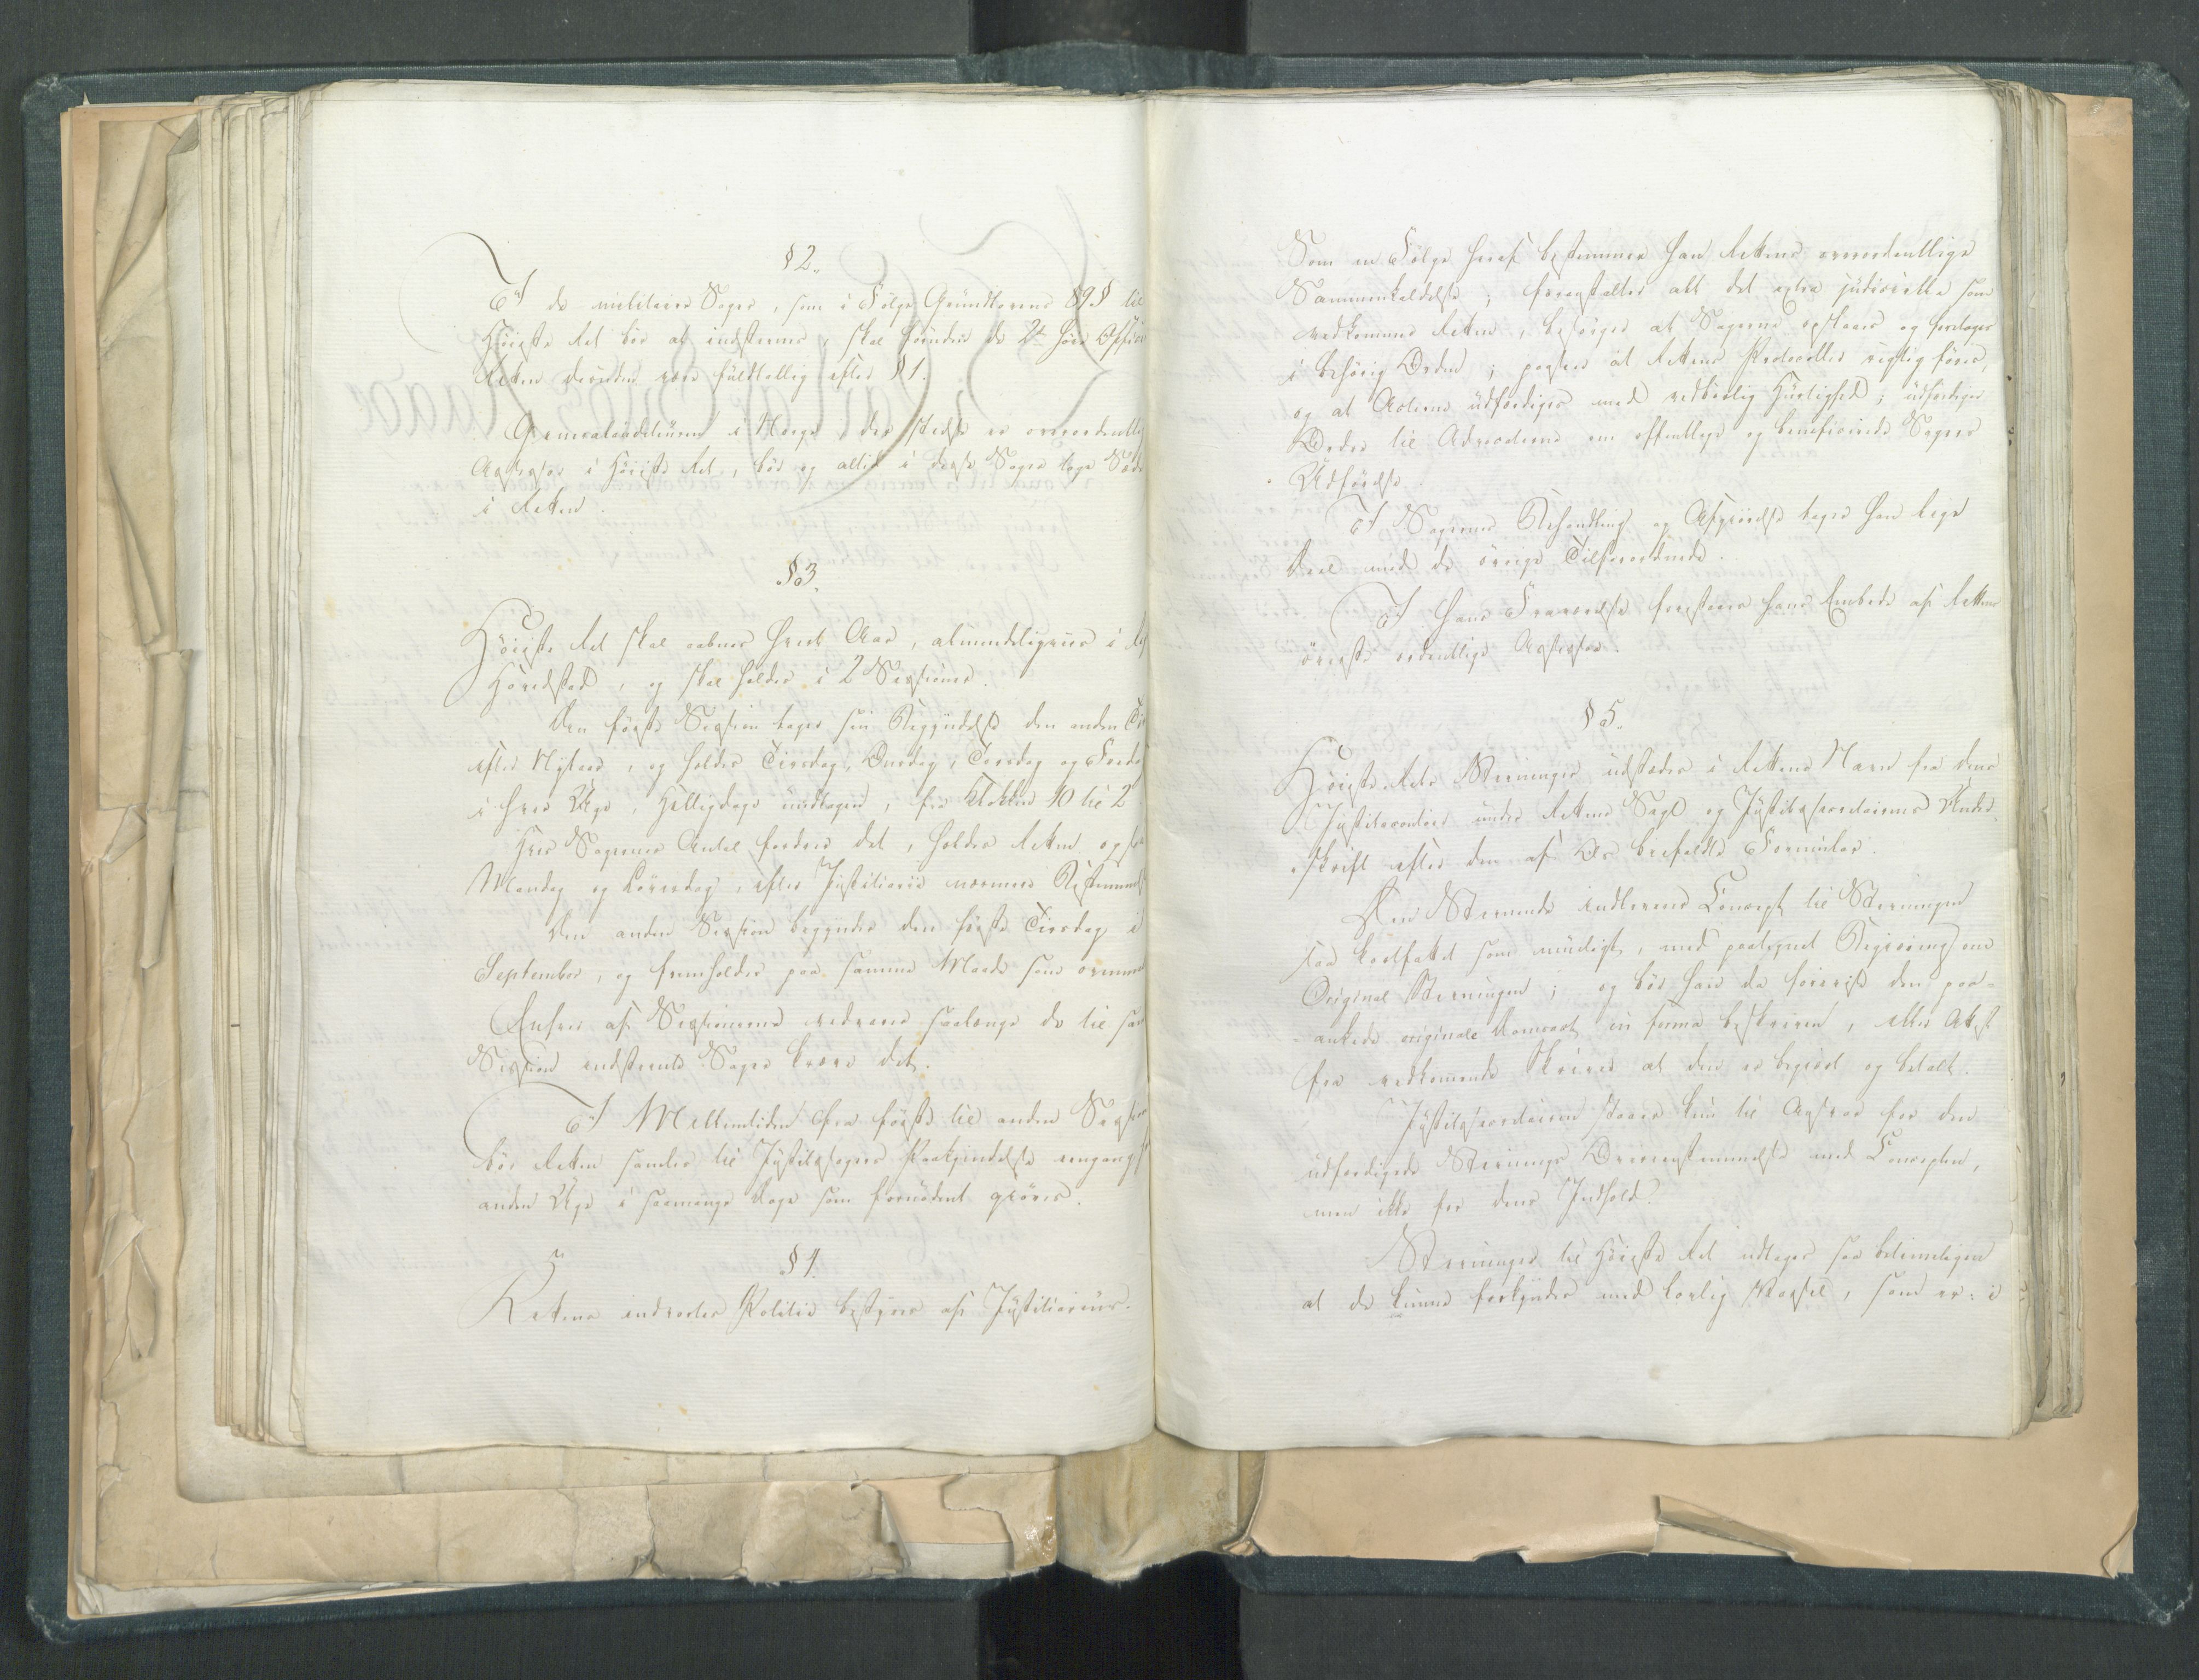 § 2.
I de militaire Sager, som i Følge Grundlovens 89 § til
Høieste Ret bør at indstevnes, skal foruden de 2de høie Officier
Retten desuden være fuldtallig efter § 1.
Generalauditeuren i Norge, der stedse er overordentlig
Assessor i Høieste Ret, bør og altid i disse Sager tage Sæde
i Retten.
§ 3.
Høieste Ret skal aabnes hvert Aar, almindeligviis i
Hovedstad, og skal holdes i 2 Sessioner.
Den første Session tager sin Begyndelse den anden
efter Nytaar, og holdes Tirsdag, Onsdag, Torsdag og Fredag
i hver Uge, Helligdage undtagen, fra Klokken 10 til 2
Hvis Sagernes Antal fordrer det, holdes Retten og
Mandag og Løverdag, efter Justitiarii nærmere Bestemmelse
Den anden Session begynder den første Tirsdag i
September, og fremholdes paa samme Maade som ovenmeldt
Enhver af Sessionerne vedvarer saalænge de til
Session indstevnte Sager kræve det.
I Mellemtiden fra første til anden Session
bør Retten samles til Justitssagers Paakjendelse eengang
anden Uge i saamange Dage som fornødent gjøres.
§ 4.
Rettens indvortes Politie bestyres af Justitiarius.
Som en Følge heraf bestemmer han Rettens overordentlige
Sammenkaldelse; foranstalter alt det extra judicielle som
vedkommer Retten, besørger at Sagerne opslaaes og foretages
i behørig Orden; paaseer at Rettens Protocoller rigtig føres,
og at Acterne udfærdiges med vedbørlig Hurtighed; udfærdiger
Ordre til Advocaterne om offentlige og beneficerede Sagers
Udførelse.
I Sagernes Behandling og Afgiørelse tager han lige
Deel med de øvrige Tilforordnede.
I hans Fraværelse forestaaes hans Embede af Rettens
øverste ordentlige Assessor.
§ 5.
Høieste Rets Stevninger udstædes i Rettens Navn fra dens
Justitssecretair under Rettens Segl og Justitssecretairens Under¬
skrift efter den af Os befalede Formular.
Den Stevnende indleverer Concept til Stevningen
saa kortfattet som muligt, med paategnet Begiæring om
Original Stevningen; og bør han da forevise den paa¬
ankede originale Domsact in forma beskreven, eller Attest
fra vedkommende Skriver at den er begiært og betalt.
Justitssecretairen staaer kun til Ansvar for den
udfærdigede Stevnings Overeensstemmelse med Concepten,
men ikke for dens Indhold.
Stevninger til Høieste Ret udtages saa betimeligen
at de kunne forkyndes med lovlig Varsel, som er: i